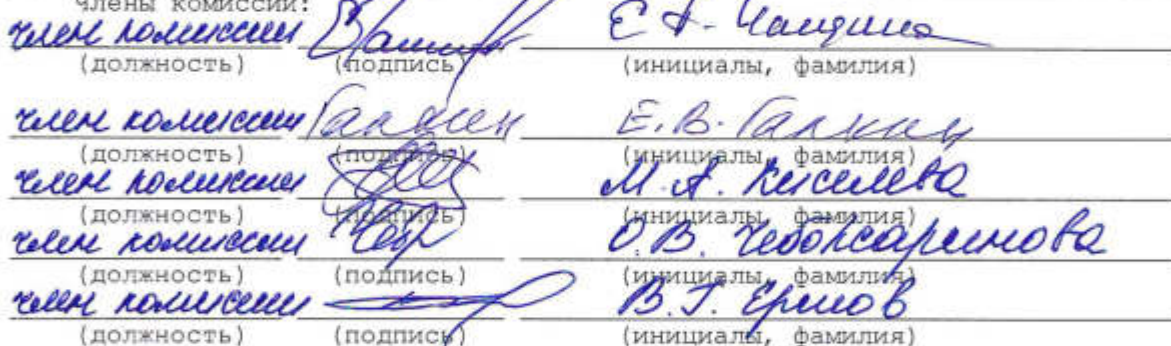 Члены комиссии:
член комиссии Е.А.
(должность) (подпись) (инициалы, фамилия)
член комиссии Галкин Е.В. Галкин
(должность) (подпись) (инициалы, фамилия)
член комиссии М.А. Киселева
(должность) (подпись) (инициалы, фамилия)
член комиссии О.В. Чебоксаринова
(должность) (подпись) (инициалы, фамилия)
член комиссии В.Г. Ермов
(должность) (подпись) (инициалы, фамилия)